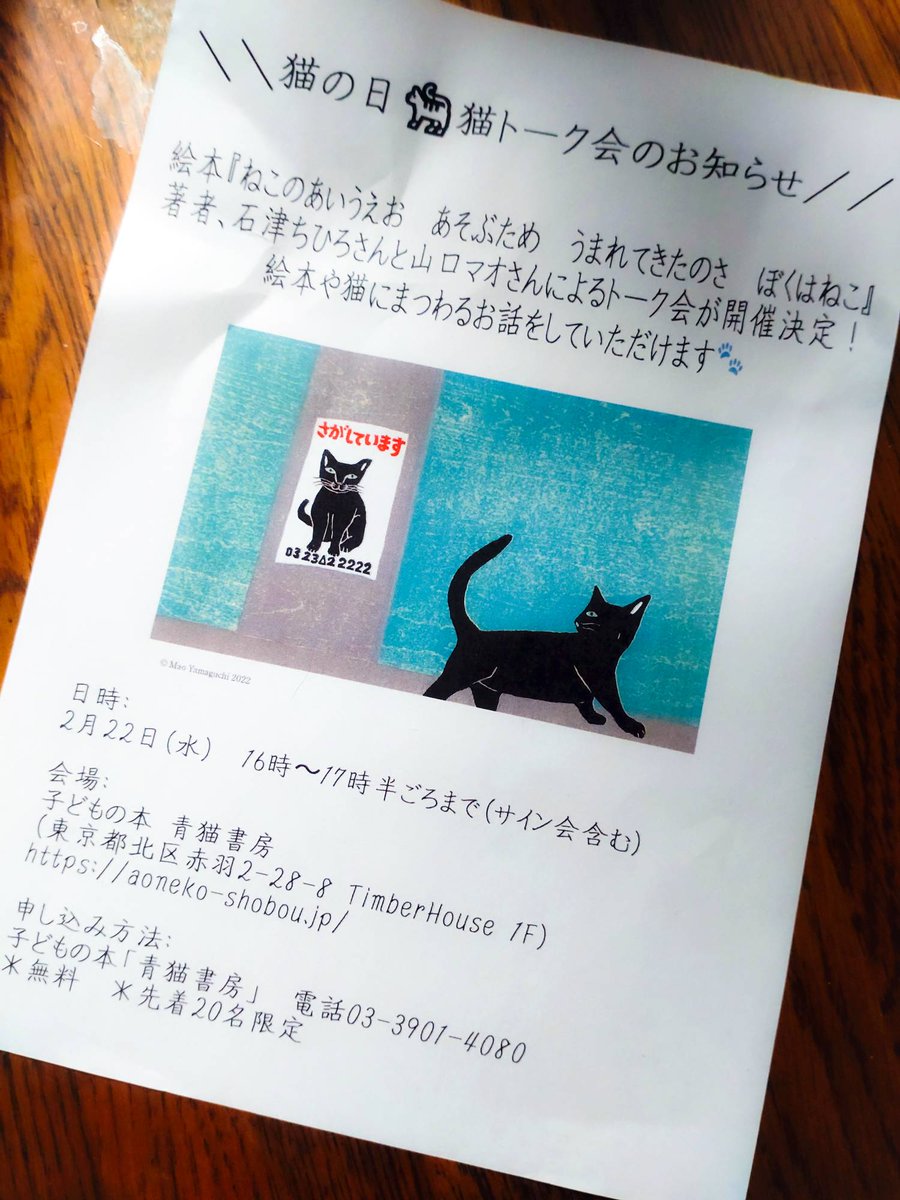 ＼＼猫の日🐈猫トーク会のお知らせ／／
絵本『ねこのあいうえお　あそぶため　うまれてきたのさ　ぼくはねこ』
著者、石津ちひろさんと山口マオさんによるトーク会が開催決定！
絵本や猫にまつわるお話をしていただけます🐾
さがしています
03 23△2 2222
© Mao Yamaguchi 2022
日時：
2月22日（水）　16時〜17時半ごろまで（サイン会含む）
会場：
子どもの本　青猫書房
（東京都北区赤羽2-28-8 TimberHouse 1F）
https://aoneko-shobou.jp/
申し込み方法：
子どもの本「青猫書房」　電話03-3901-4080
＊無料　＊先着20名限定